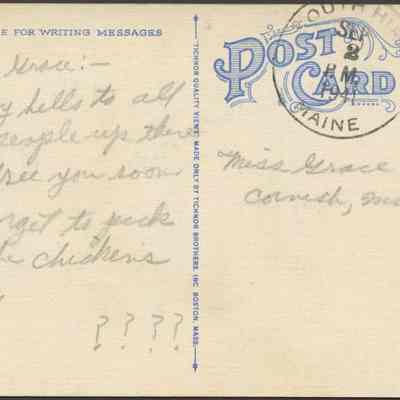 E FOR WRITING MESSAGES
Grace:—
y hells to all
people up there
see you soon
rget to pick
he chickens
? ? ? ?
TICHNOR QUALITY VIEWS, MADE ONLY BY TICHNOR BROTHERS, INC. BOSTON, MASS.
POST CARD
OUTH HI
SEP
2
P.M.
1941
MAINE
Miss Grace
Cornish, M